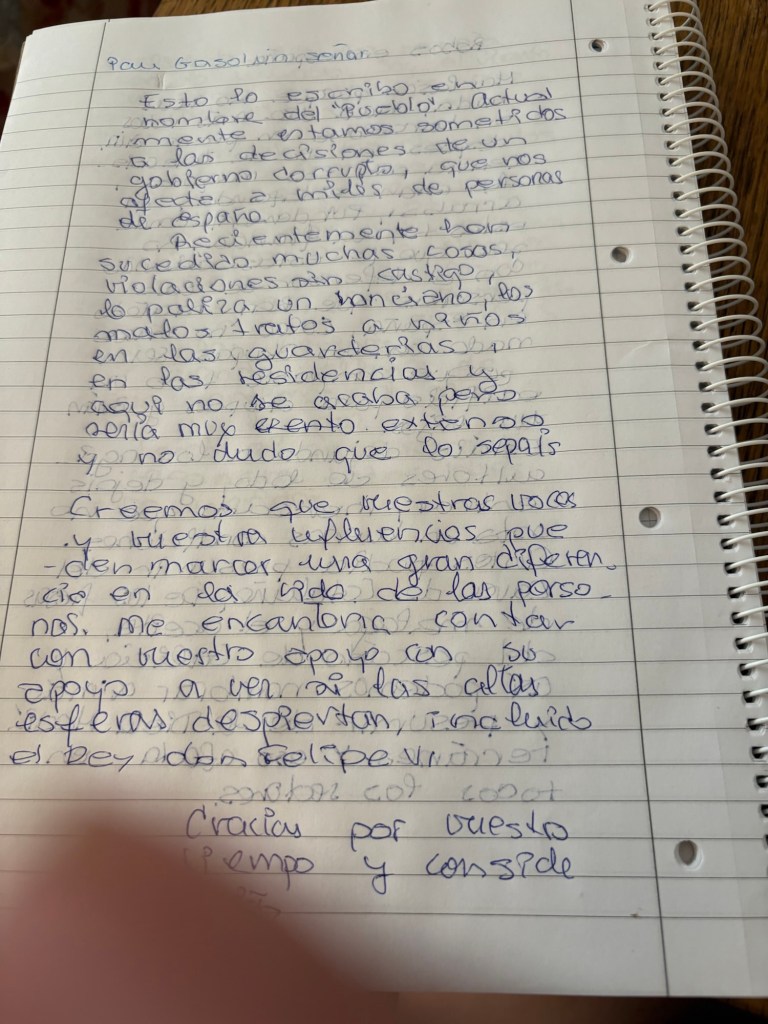 Pau Gasol sin, señar
Esto lo escribo en
nombre del "Pueblo". Actual
mente estamos sometidos
a las decisiones de un
gobierno corrupto, que nos
afecte a miles de personas
de españa.
Recientemente han
sucedido muchas cosas,
violaciones sin castigo,
la paliza un anciano, los
malos tratos a niños
en las guarderias,
en las residencias y
aqui no se acaba pero
seria muy extenso
y no dudo que lo sepais
Creemos que vuestras voces
y vuestra influencias pue
-den marcar una gran diferen
cia en la vida de las perso-
nas. me encantaria contar
con vuestro apoyo con su
apoyo a ver si las altas
esferas despiertan, incluido
el Rey don Felipe VI.
Gracias por vuestro
tiempo y conside